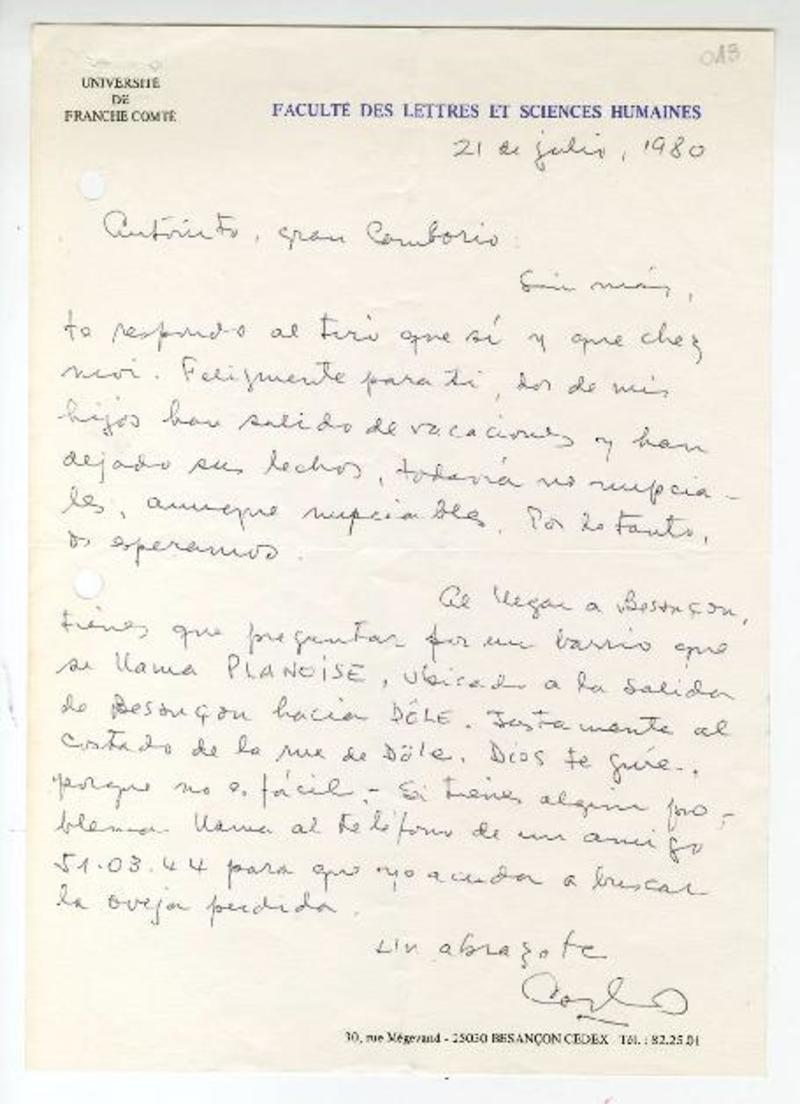 013
UNIVERSITÉ
DE
FRANCHE COMTÉ
FACULTÉ DES LETTRES ET SCIENCES HUMAINES
21 de julio, 1980
Antoñito, gran Camborio:
Sin más,
te respondo al tiro que sí y que chez
moi. Felizmente para ti, dos de mis
hijos han salido de vacaciones y han
dejado sus lechos, todavía no nupcia-
les, aunque nupciables. Por lo tanto,
os esperamos.
Al llegar a Besançon,
tienes que preguntar por un barrio que
se llama PLANOISE, ubicado a la salida
de Besançon hacia DÔLE. Justamente al
costado de la rue de Dôle. Dios te guíe,
porque no es fácil.- Si tienes algún pro-
blema llama al teléfono de un amigo
51.03.44 para que yo acuda a buscar
la oveja perdida.
Un abrazote
Carlos
30, rue Mégevand - 25030 BESANÇON CEDEX Tél. : 82.25.01